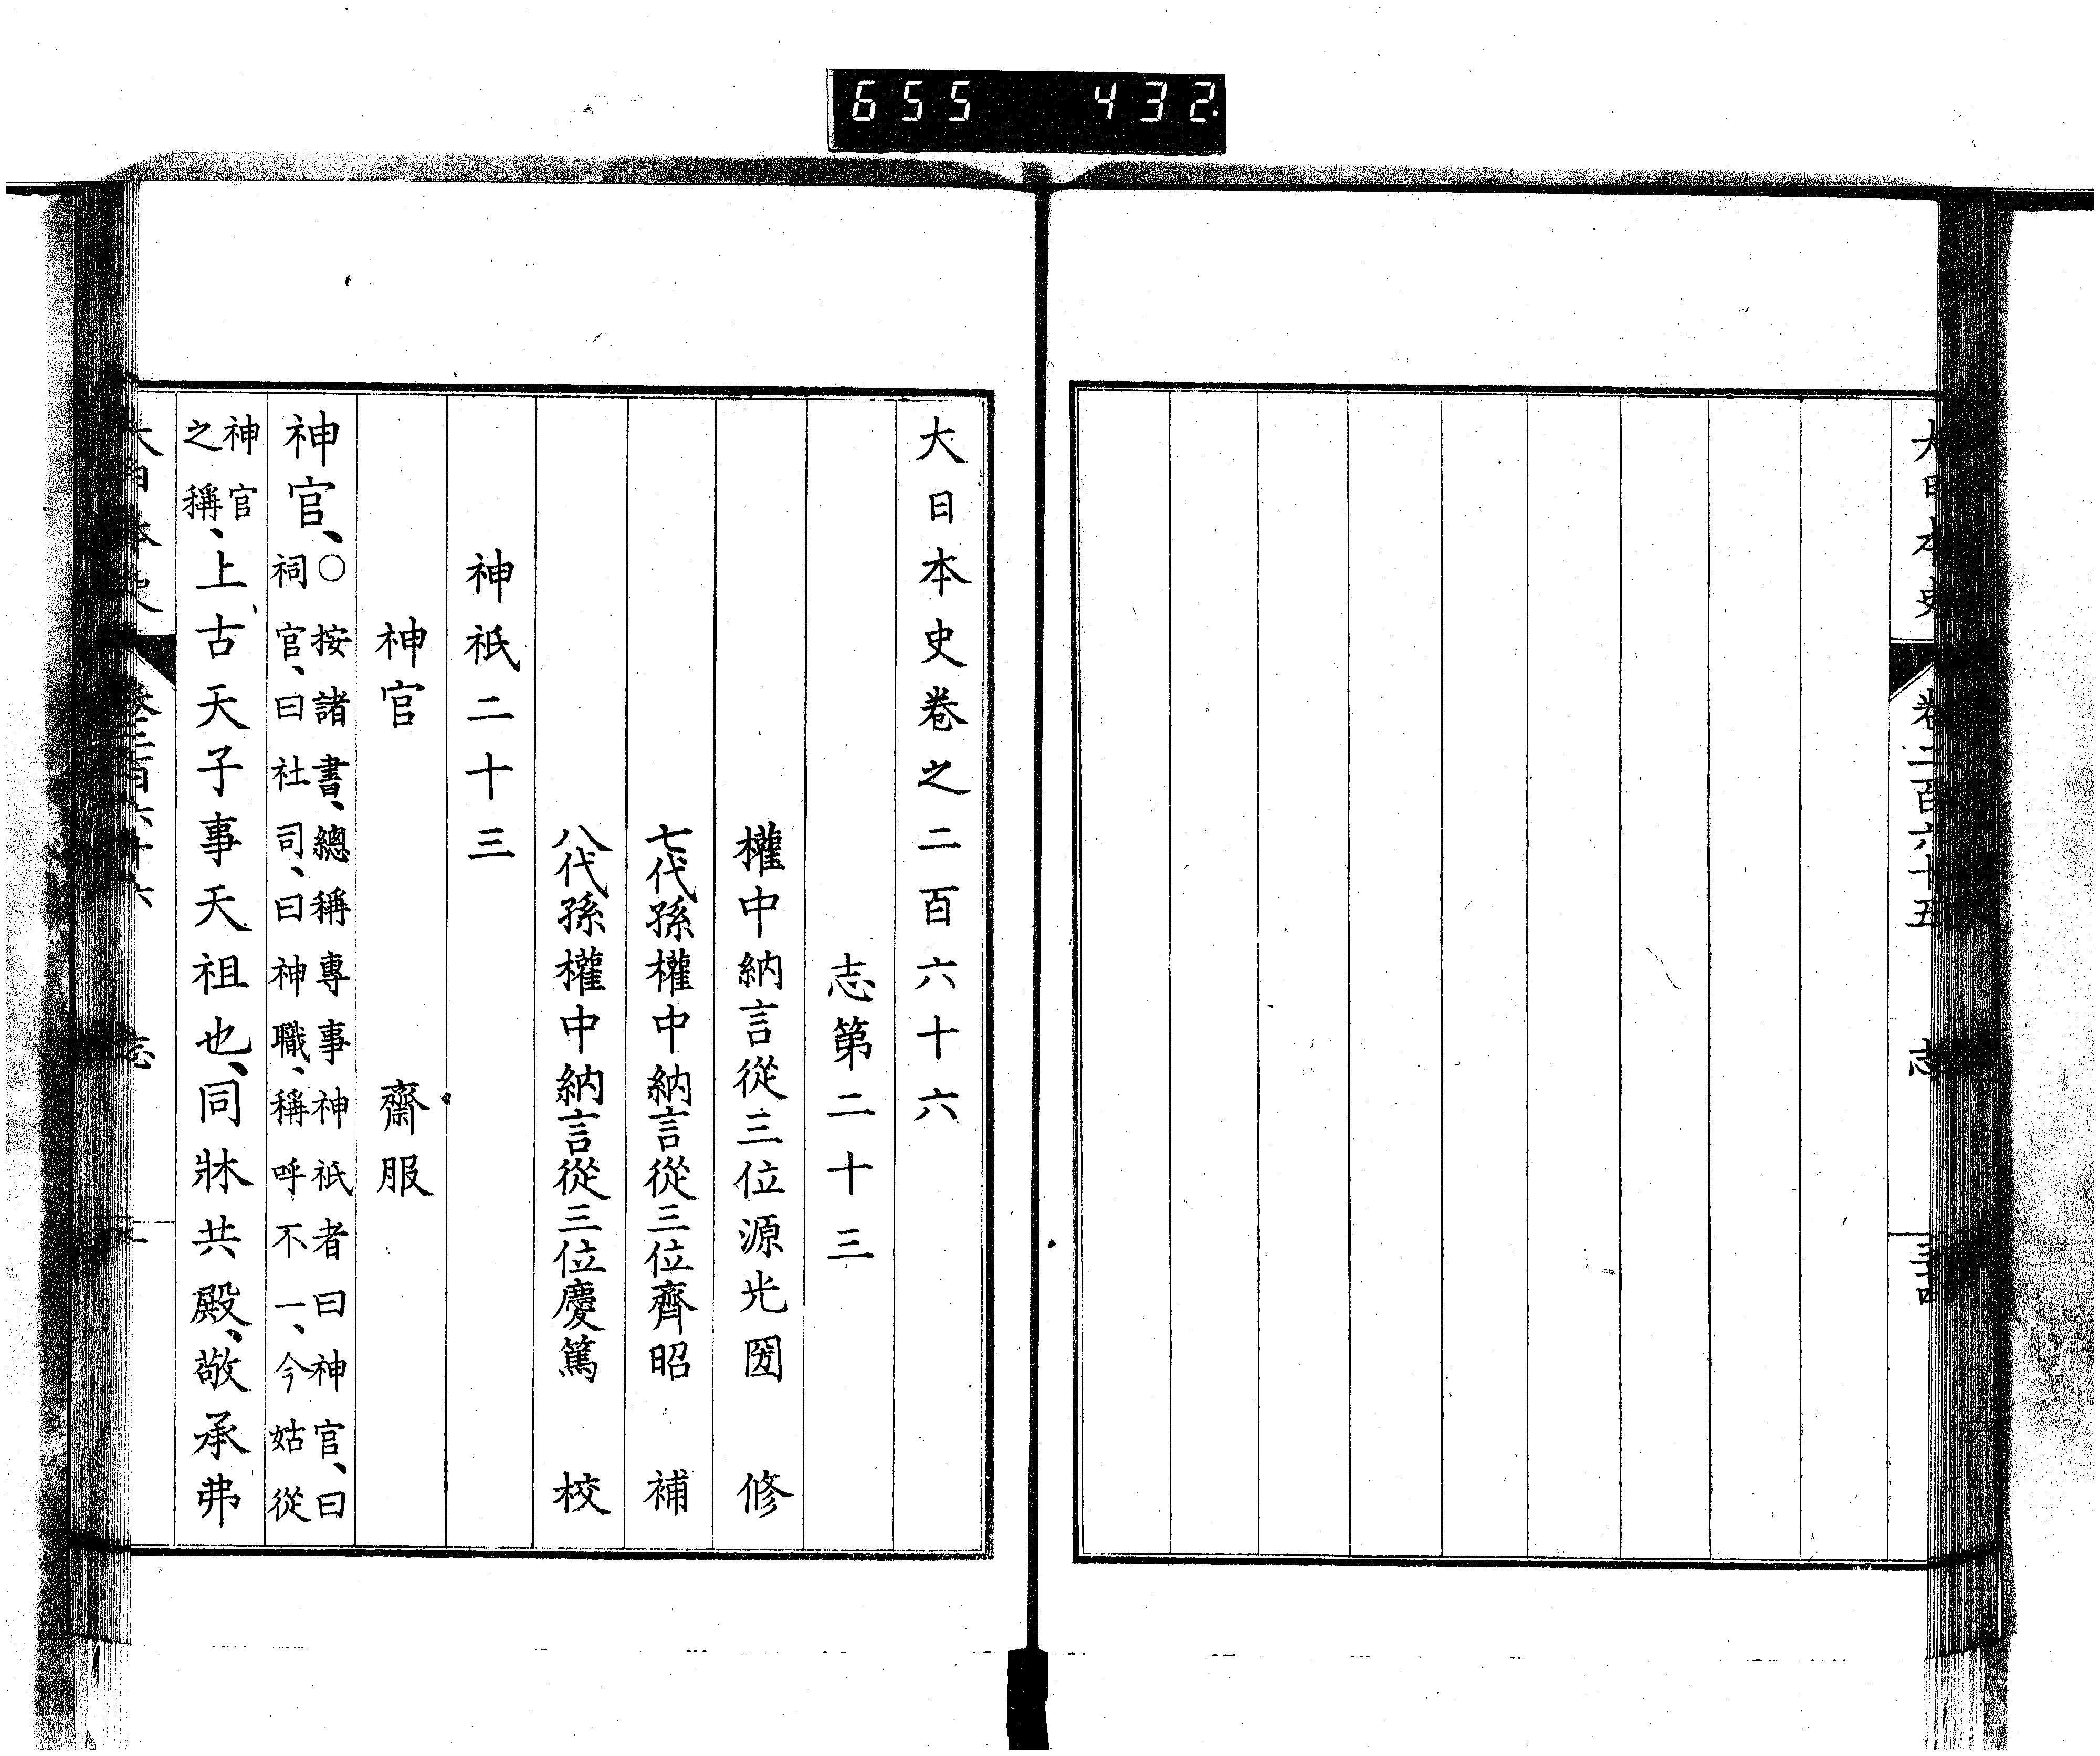 655 432
大日本史 卷二百六十五 志
大日本史卷之二百六十六
志第二十三
權中納言從三位源光圀 修
七代孫權中納言從三位齊昭 補
八代孫權中納言從三位慶篤 校
神祇二十三
神官 齋服
神官、○按諸書、總稱專事神祇者曰神官、曰
祠官、曰社司、曰神職、稱呼不一、今姑從
神官
之稱、上古天子事天祖也、同牀共殿、敬承弗
大日本史 卷二百六十六 志